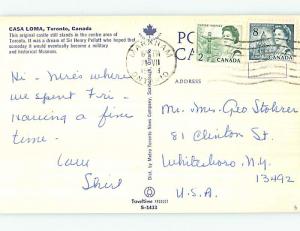 CASA LOMA, Toronto, Canada
This original castle still stands in the centre area of
Toronto. It was a dream of Sir Henry Pellatt who hoped that
someday it would eventually become a military
and historical Museum.
Hi - Here's where
we spent Fri -
having a fine
time -
Love
Shirl
Traveltime PRODUCT
S-1433
Dist. by Metro Toronto News Company, Toronto, Canada
MARKHAM
PO
CANADA
2
8
CANADA
ADDRESS
Mrs. Geo Stohrer
81 Clinton St
Whitesboro, N.Y.
13492
U.S.A.